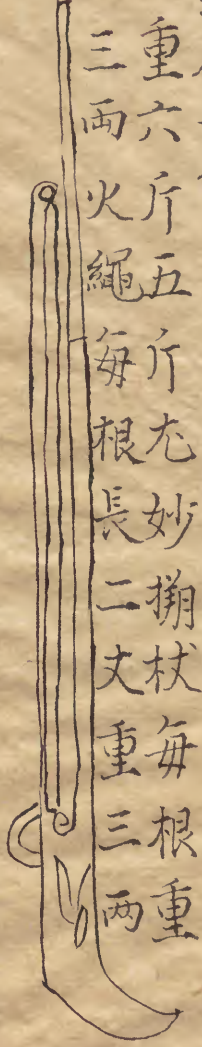 重六斤五斤尤妙搠杖每根重
三両火繩每根長二丈重三两